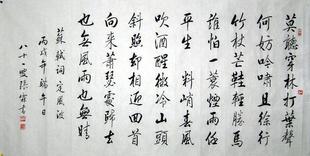 莫聽穿林打葉聲
何妨吟嘯且徐行
竹杖芒鞋輕勝馬
誰怕一蓑煙雨任
平生料峭春風
吹酒醒微冷山頭
斜照卻相迎回首
向來蕭瑟處歸去
也無風雨也無晴
蘇軾詞定風波
丙戌年端午日
八十二叟張書